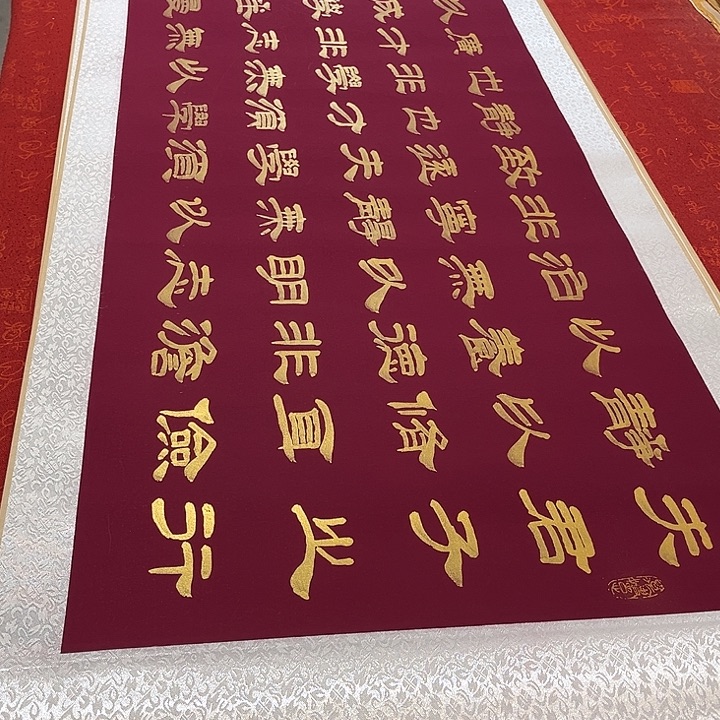 夫君子之行
靜以脩身儉
以養德非澹
泊無以明志
非寧靜無以
致遠夫學須
靜也才須學
也非學無以
廣才非志無
以成學慢